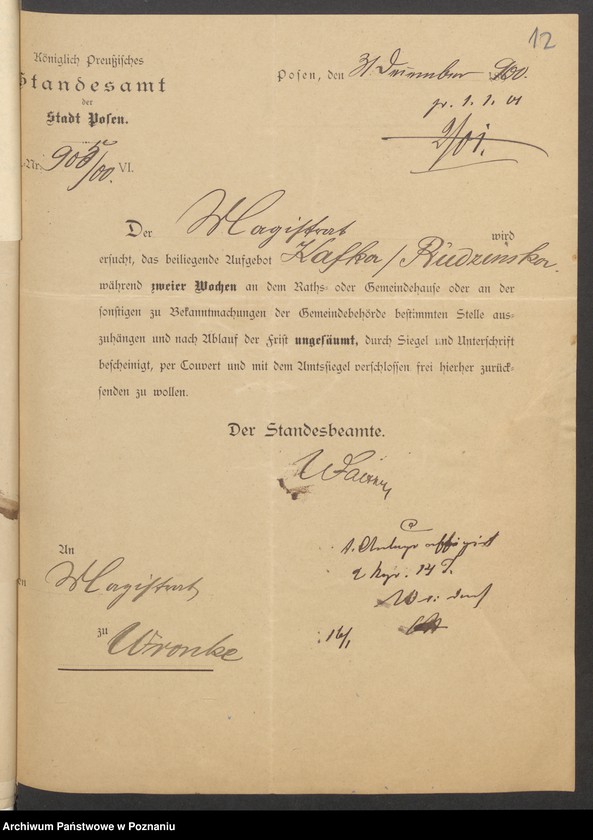 12
Königlich Preußisches
Standesamt
der
Stadt Posen.
Posen, den 31 December 1900.
pr. 1. 1. 01
2/01.
Nr. /00. VI.
Der Magistrat wird
ersucht, das beiliegende Aufgebot Kafka / Rudzinska.
während zweier Wochen an dem Raths- oder Gemeindehause oder an der
sonstigen zu Bekanntmachungen der Gemeindebehörde bestimmten Stelle aus-
zuhängen und nach Ablauf der Frist ungesäumt, durch Siegel und Unterschrift
bescheinigt, per Couvert und mit dem Amtssiegel verschlossen frei hierher zurück-
senden zu wollen.
Der Standesbeamte.
An
Magistrat
zu
Wronke
1.
2
16/1
Archiwum Państwowe w Poznaniu